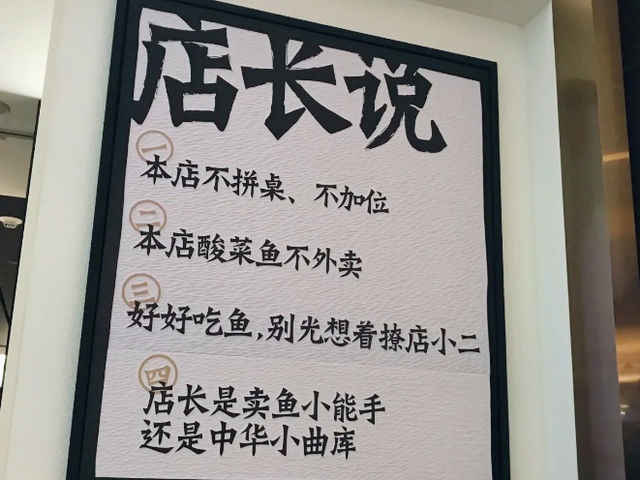 店长说
一
本店不拼桌、不加位
二
本店酸菜鱼不外卖
三
好好吃鱼,别光想着撩店小二
四
店长是卖鱼小能手
还是中华小曲库